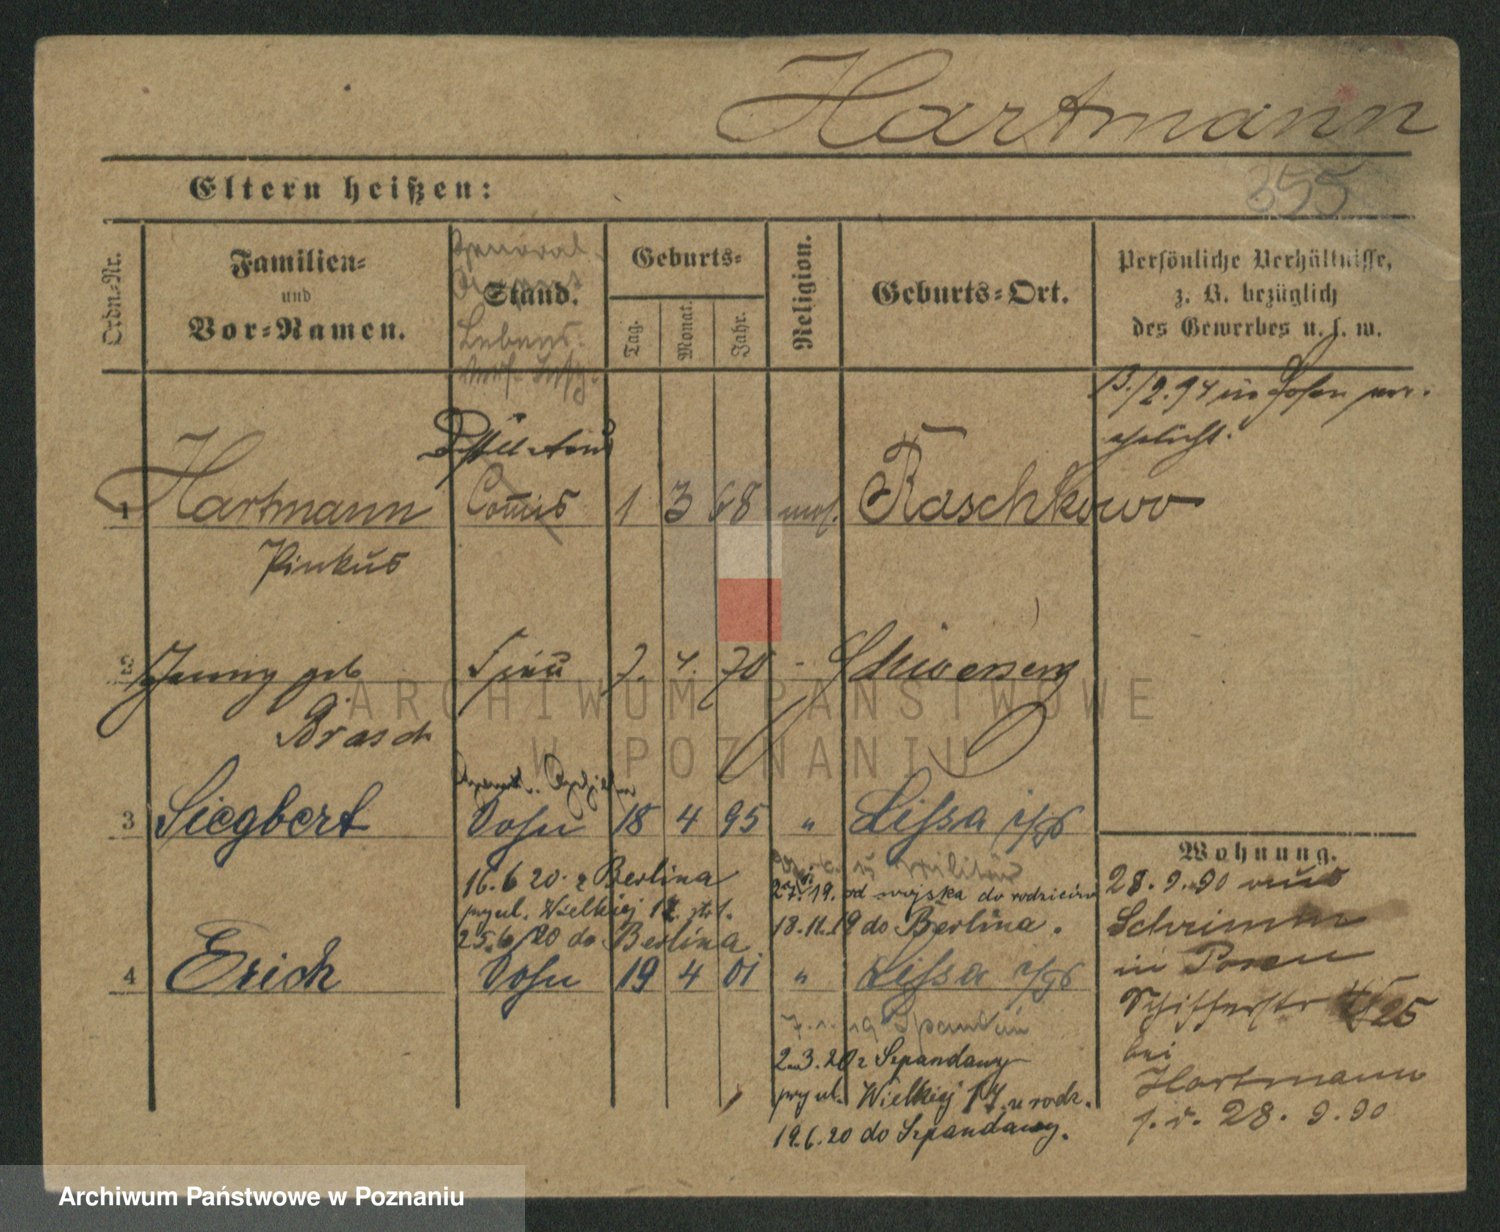 Hartmann
355
Eltern heißen:
Ordn.-Nr.
Familien-
und
Vor-Namen.
General-
Agent
Stand.
Lebens-
Geburts-
Tag.
Monat.
Jahr.
Religion.
Geburts-Ort.
Persönliche Verhältnisse,
z. B. bezüglich
des Gewerbes u. s. w.
13./2.94 in Posen ver-
ehelicht.
1 Hartmann Commis 1 3 68 mos. Raschkowo
Pinkus
2 Jenny geb Frau 7. 4. 70 - Schwersenz
Brasch
3 Siegbert Sohn 18 4 95 " Lissa i/P
Wohnung.
28.9.90 aus
Schrimm
in Posen
25
bei
Hartmann
s. v. 28.9.90
16.6 20 z Berlina
przy ul. Wielkiej 17.
25.6/20 do Berlina
zu Militär
19. od wojska do rodziców
18.11.19 do Berlina.
4 Erich Sohn 19 4 01 " Lissa i/P
19 Spandau
2.3.20 z Szpandawy
przy ul. Wielkiej 17 u rodz.
19.6.20 do Szpandawy.
ARCHIWUM PAŃSTWOWE
W POZNANIU
Archiwum Państwowe w Poznaniu